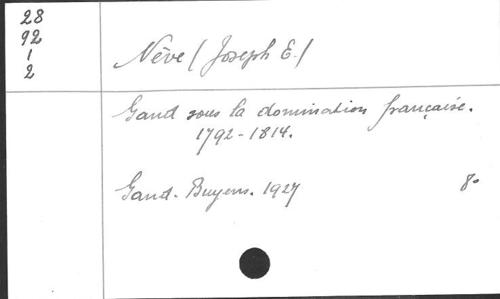 28
92
1
2
Nève (Joseph E.)
Gand sous la domination française.
1792-1814.
Gand. Buyens. 1927 8°